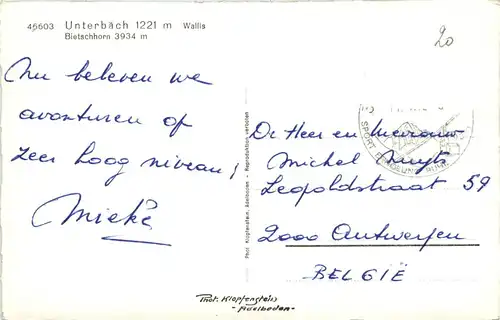 45603 Unterbäch 1221 m Wallis
Bietschhorn 3934 m
20
Nu beleven we
avonturen op
zeer hoog niveau!
Mieke
Phot. Klopfenstein, Adelboden - Reproduktion verboten
SPORT
De Heer en Mevrouw
Michel Nuyts
Leopoldstraat 59
2000 Antwerpen
BELGIË
Phot. Klopfenstein
- Adelboden -